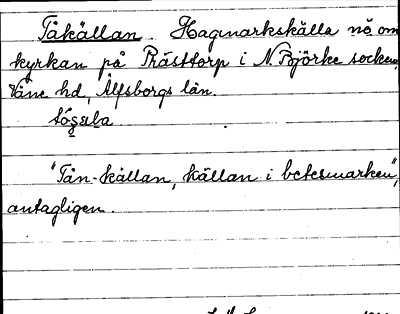 Tåkällan Hagmarkskälla nö om
kyrkan på Prästtorp i N. Björke socken,
Väne hd, Älfsborgs län.
"Tån-källan, källan i betesmarken",
antagligen.